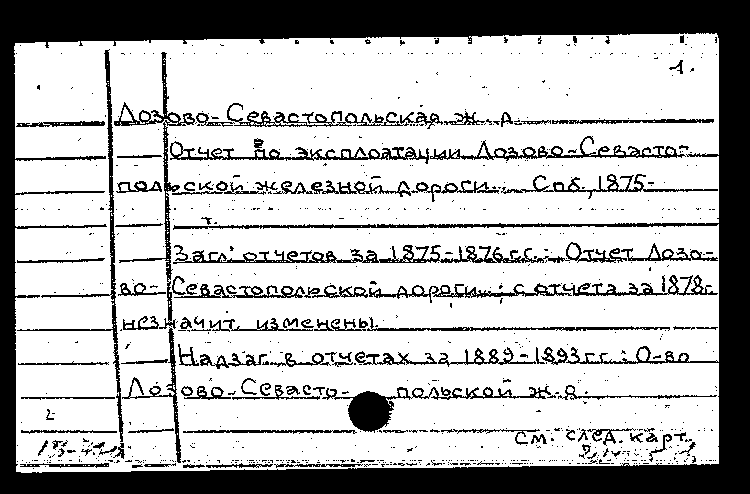 1.
Лозово-Севастопольская ж. д.
Отчет по эксплоатации Лозово-Севасто-
польской железной дороги. Спб., 1875-
т.
Загл. отчетов за 1875-1876 г.г.: Отчет Лозо-
во-Севастопольской дороги..; с отчета за 1878г.
незначит. изменены.
Надзаг. в отчетах за 1889-1893 г.г.: О-во
Лозово-Севасто- польской ж.д.
2
См. след. карт.